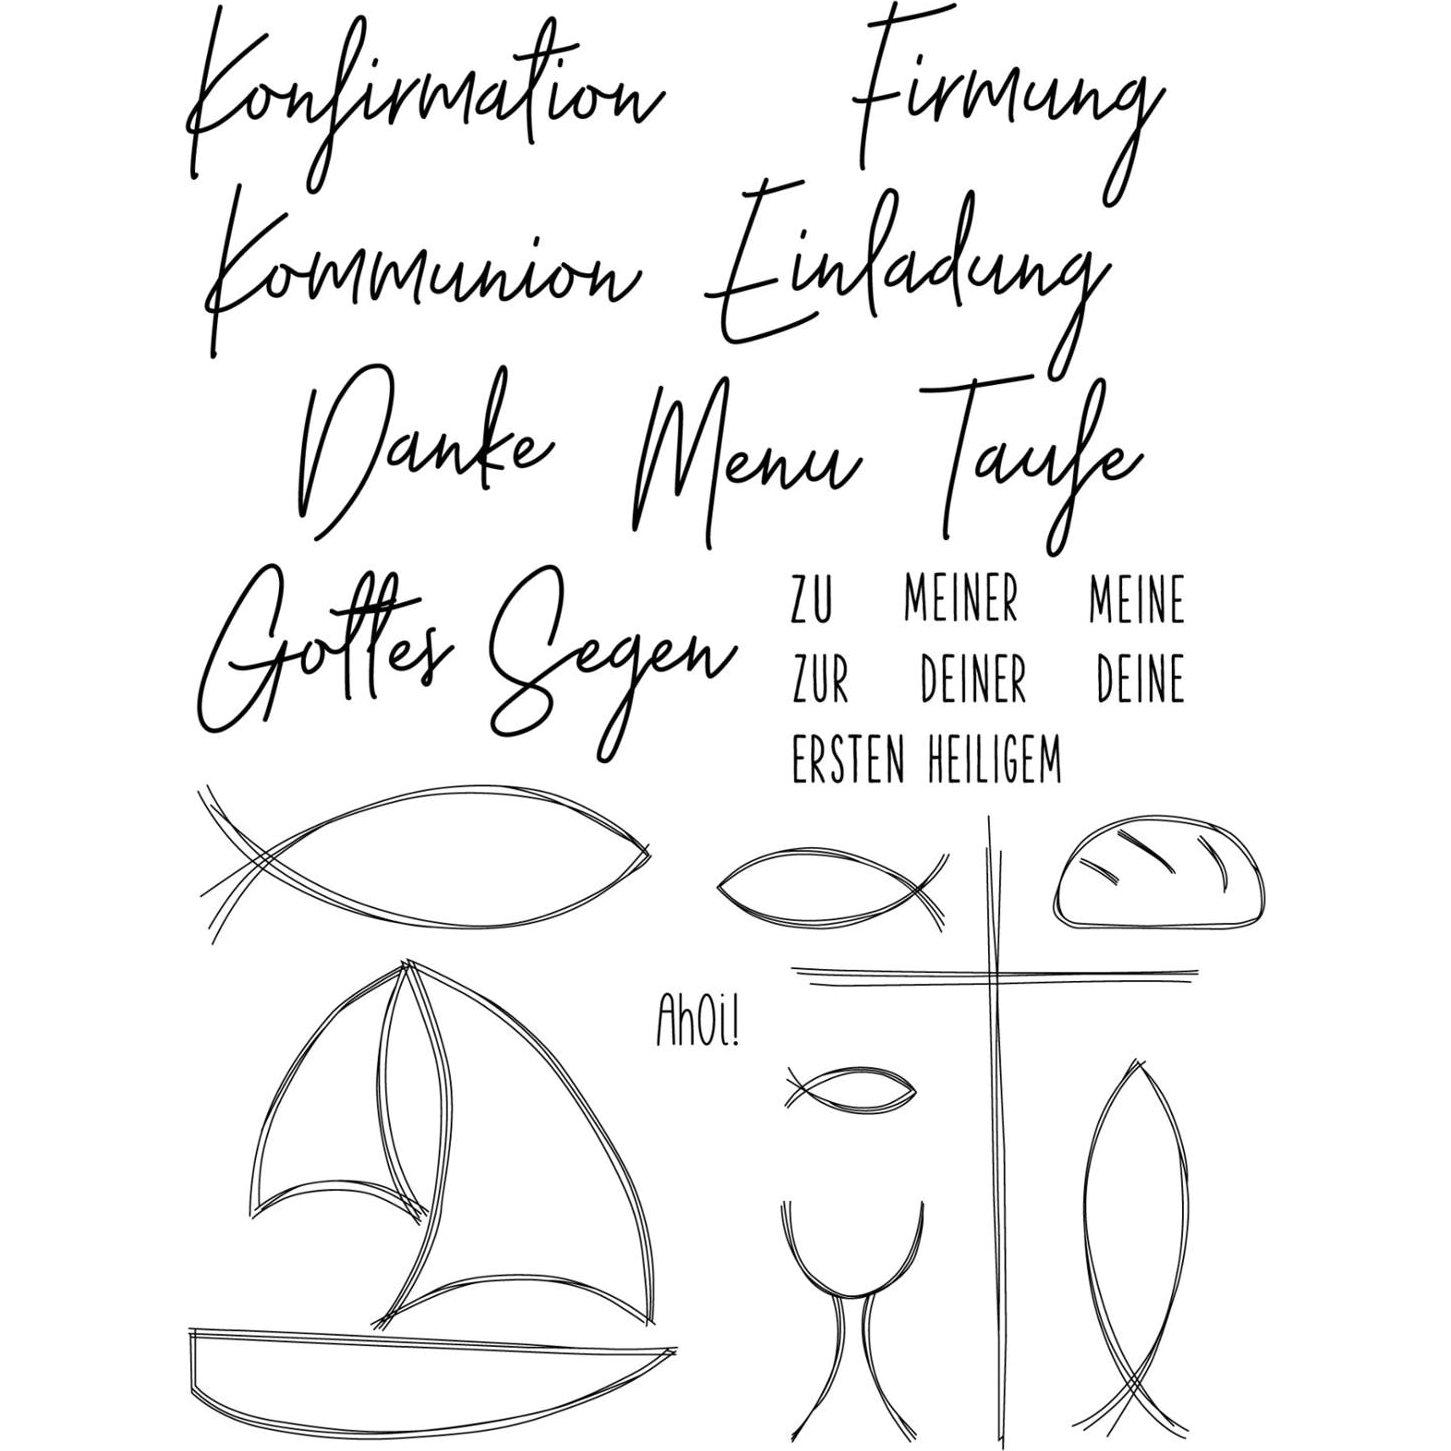 Konfirmation Firmung
Kommunion Einladung
Danke Menu Taufe
Gottes Segen
ZU MEINER MEINE
ZUR DEINER DEINE
ERSTEN HEILIGEM
AhOi!